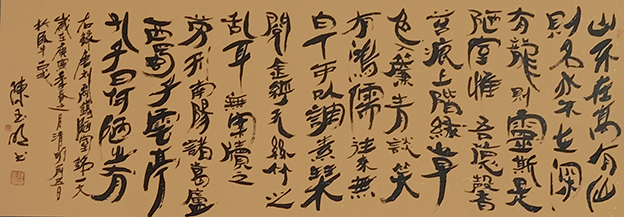 山不在高有仙
則名水不在深
有龍則靈斯是
陋室惟吾德馨
苔痕上階緣草
色入簾青談笑
有鴻儒往來無
白丁可以調素琴
閱金經無絲竹之
亂耳無案牘之
勞形南陽諸葛廬
西蜀子雲亭
孔子曰何陋之有
右錄唐劉禹錫陋室銘一文
歲在庚寅年春之月清明前五日
陳玉書